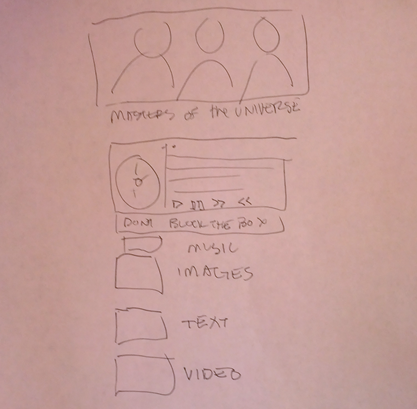 MASTERS OF the UNIVERSE
DONT BLOCK THE BOX
MUSIC
IMAGES
TEXT
VIDEO